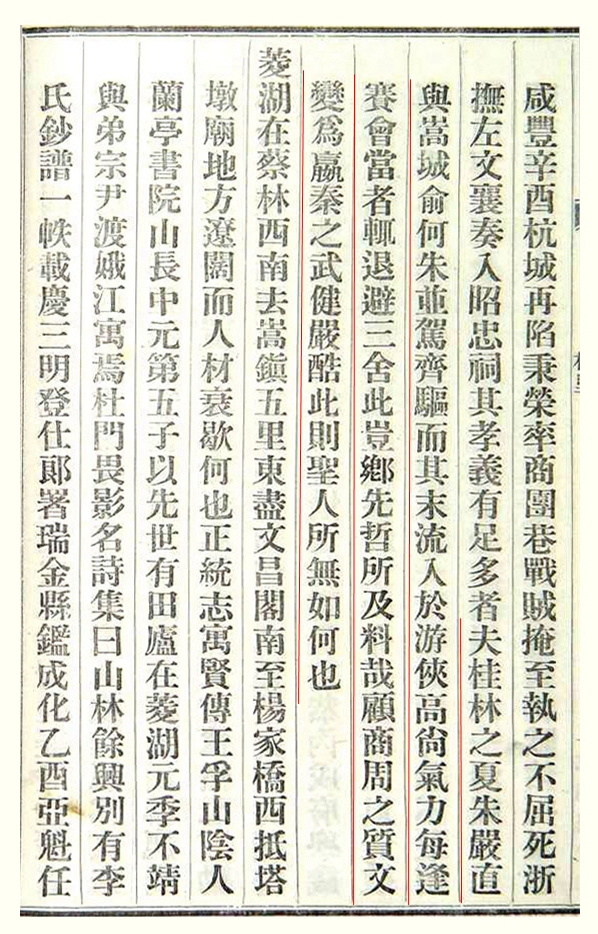 咸豐辛酉杭城再陷秉榮率商團巷戰賊掩至執之不屈死浙
撫左文襄奏入昭忠祠其孝義有足多者夫桂林之夏朱嚴直
與嵩城俞何朱並駕齊驅而其末流入於游俠高尙氣力每逢
賽會當者輒退避三舍此豈鄉先哲所及料哉顧商周之質文
變爲嬴秦之武健嚴酷此則聖人所無如何也
菱湖在蔡林西南去嵩鎭五里東盡文昌閣南至楊家橋西抵塔
墩廟地方遼闊而人材衰歇何也正統志寓賢傳王孚山陰人
蘭亭書院山長中元第五子以先世有田廬在菱湖元季不靖
與弟宗尹渡娥江寓焉杜門畏影名詩集曰山林餘興別有李
氏鈔譜一帙載慶三明登仕郞署瑞金縣鑑成化乙酉亞魁任